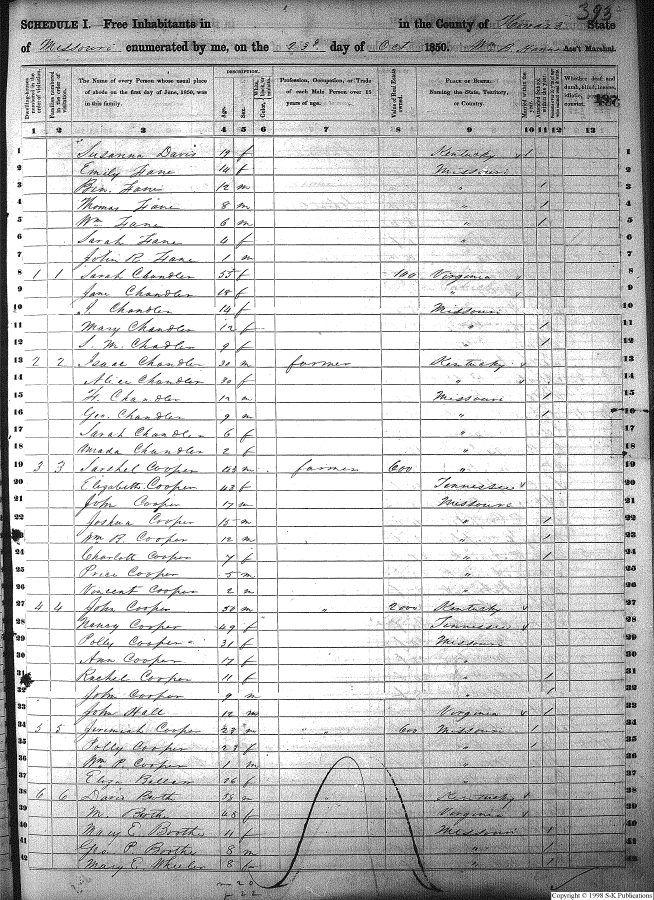 393
SCHEDULE I. Free Inhabitants in in the County of Howard State
of Missouri enumerated by me, on the 23d day of Oct 1850. Wm B. Ass't Marshal.
Dwelling-houses numbered in the order of visitation.
Families numbered in the order of visitation.
The Name of every Person whose usual place of abode on the first day of June, 1850, was in this family.
DESCRIPTION.
Age.
Sex.
Color, White, black, or mulatto.
Profession, Occupation, or Trade of each Male Person over 15 years of age.
Value of Real Estate owned.
PLACE OF BIRTH. Naming the State, Territory, or Country.
Married within the year.
Attended School within the year.
Whether deaf and dumb, blind, insane, idiotic, pauper, or convict.
1 2 3 4 5 6 7 8 9 10 11 12 13
1 Susanna Davis 19 f Kentucky 1 1
2 Emily Lane 14 f Missouri 2
3 Ben. Lane 12 m " 1 3
4 Thomas Lane 8 m " 1 4
5 Wm Lane 6 m " 1 5
6 Sarah Lane 4 f " 6
7 John R Lane 1 m 7
8 1 1 Sarah Chandler 55 f 100 Virginia 8
9 Jane Chandler 18 f " 9
10 J. Chandler 14 f Missouri 10
11 Mary Chandler 12 f " 1 11
12 S. M. Chadler 9 f " 1 12
13 2 2 Isaac Chandler 30 m farmer Kentucky 13
14 Alice Chandler 30 f " 14
15 H. Chandler 12 m Missouri 1 15
16 Geo. Chandler 9 m " 1 16
17 Sarah Chandler 6 f " 17
18 Chandler 2 f " 18
19 3 3 Sarshel Cooper 43 m farmer 600 " 19
20 Elizabeth Cooper 43 f Tennessee 20
21 John Cooper 17 m Missouri 21
22 Joshua Cooper 15 m " 1 22
23 Wm B. Cooper 12 m " 1 23
24 Charlott Cooper 7 f " 1 24
25 Price Cooper 5 m " 25
26 Vincent Cooper 2 m " 26
27 4 4 John Cooper 50 m " 2000 Kentucky 27
28 Nancy Cooper 49 f Tennessee 28
29 Polly Cooper 31 f Missouri 29
30 Ann Cooper 17 f " 30
31 Rachel Cooper 11 f " 1 31
32 John Cooper 9 m " 1 32
33 John Hall 12 m Virginia 1 33
34 5 5 Jeremiah Cooper 23 m " 600 Missouri 1 34
35 Polly Cooper 23 f " 1 35
36 Wm P. Cooper 1 m " 36
37 Eliza 26 f " 37
38 6 6 Davis m " Kentucky 38
39 M. Boothe 45 f Virginia 39
40 Mary E Boothe 11 f Missouri 1 40
41 Geo P. Boothe 8 m " 1 41
42 Mary E. Wheeler 8 f " 1 42
m 20
f 22
Copyright © 1998 S-K Publications